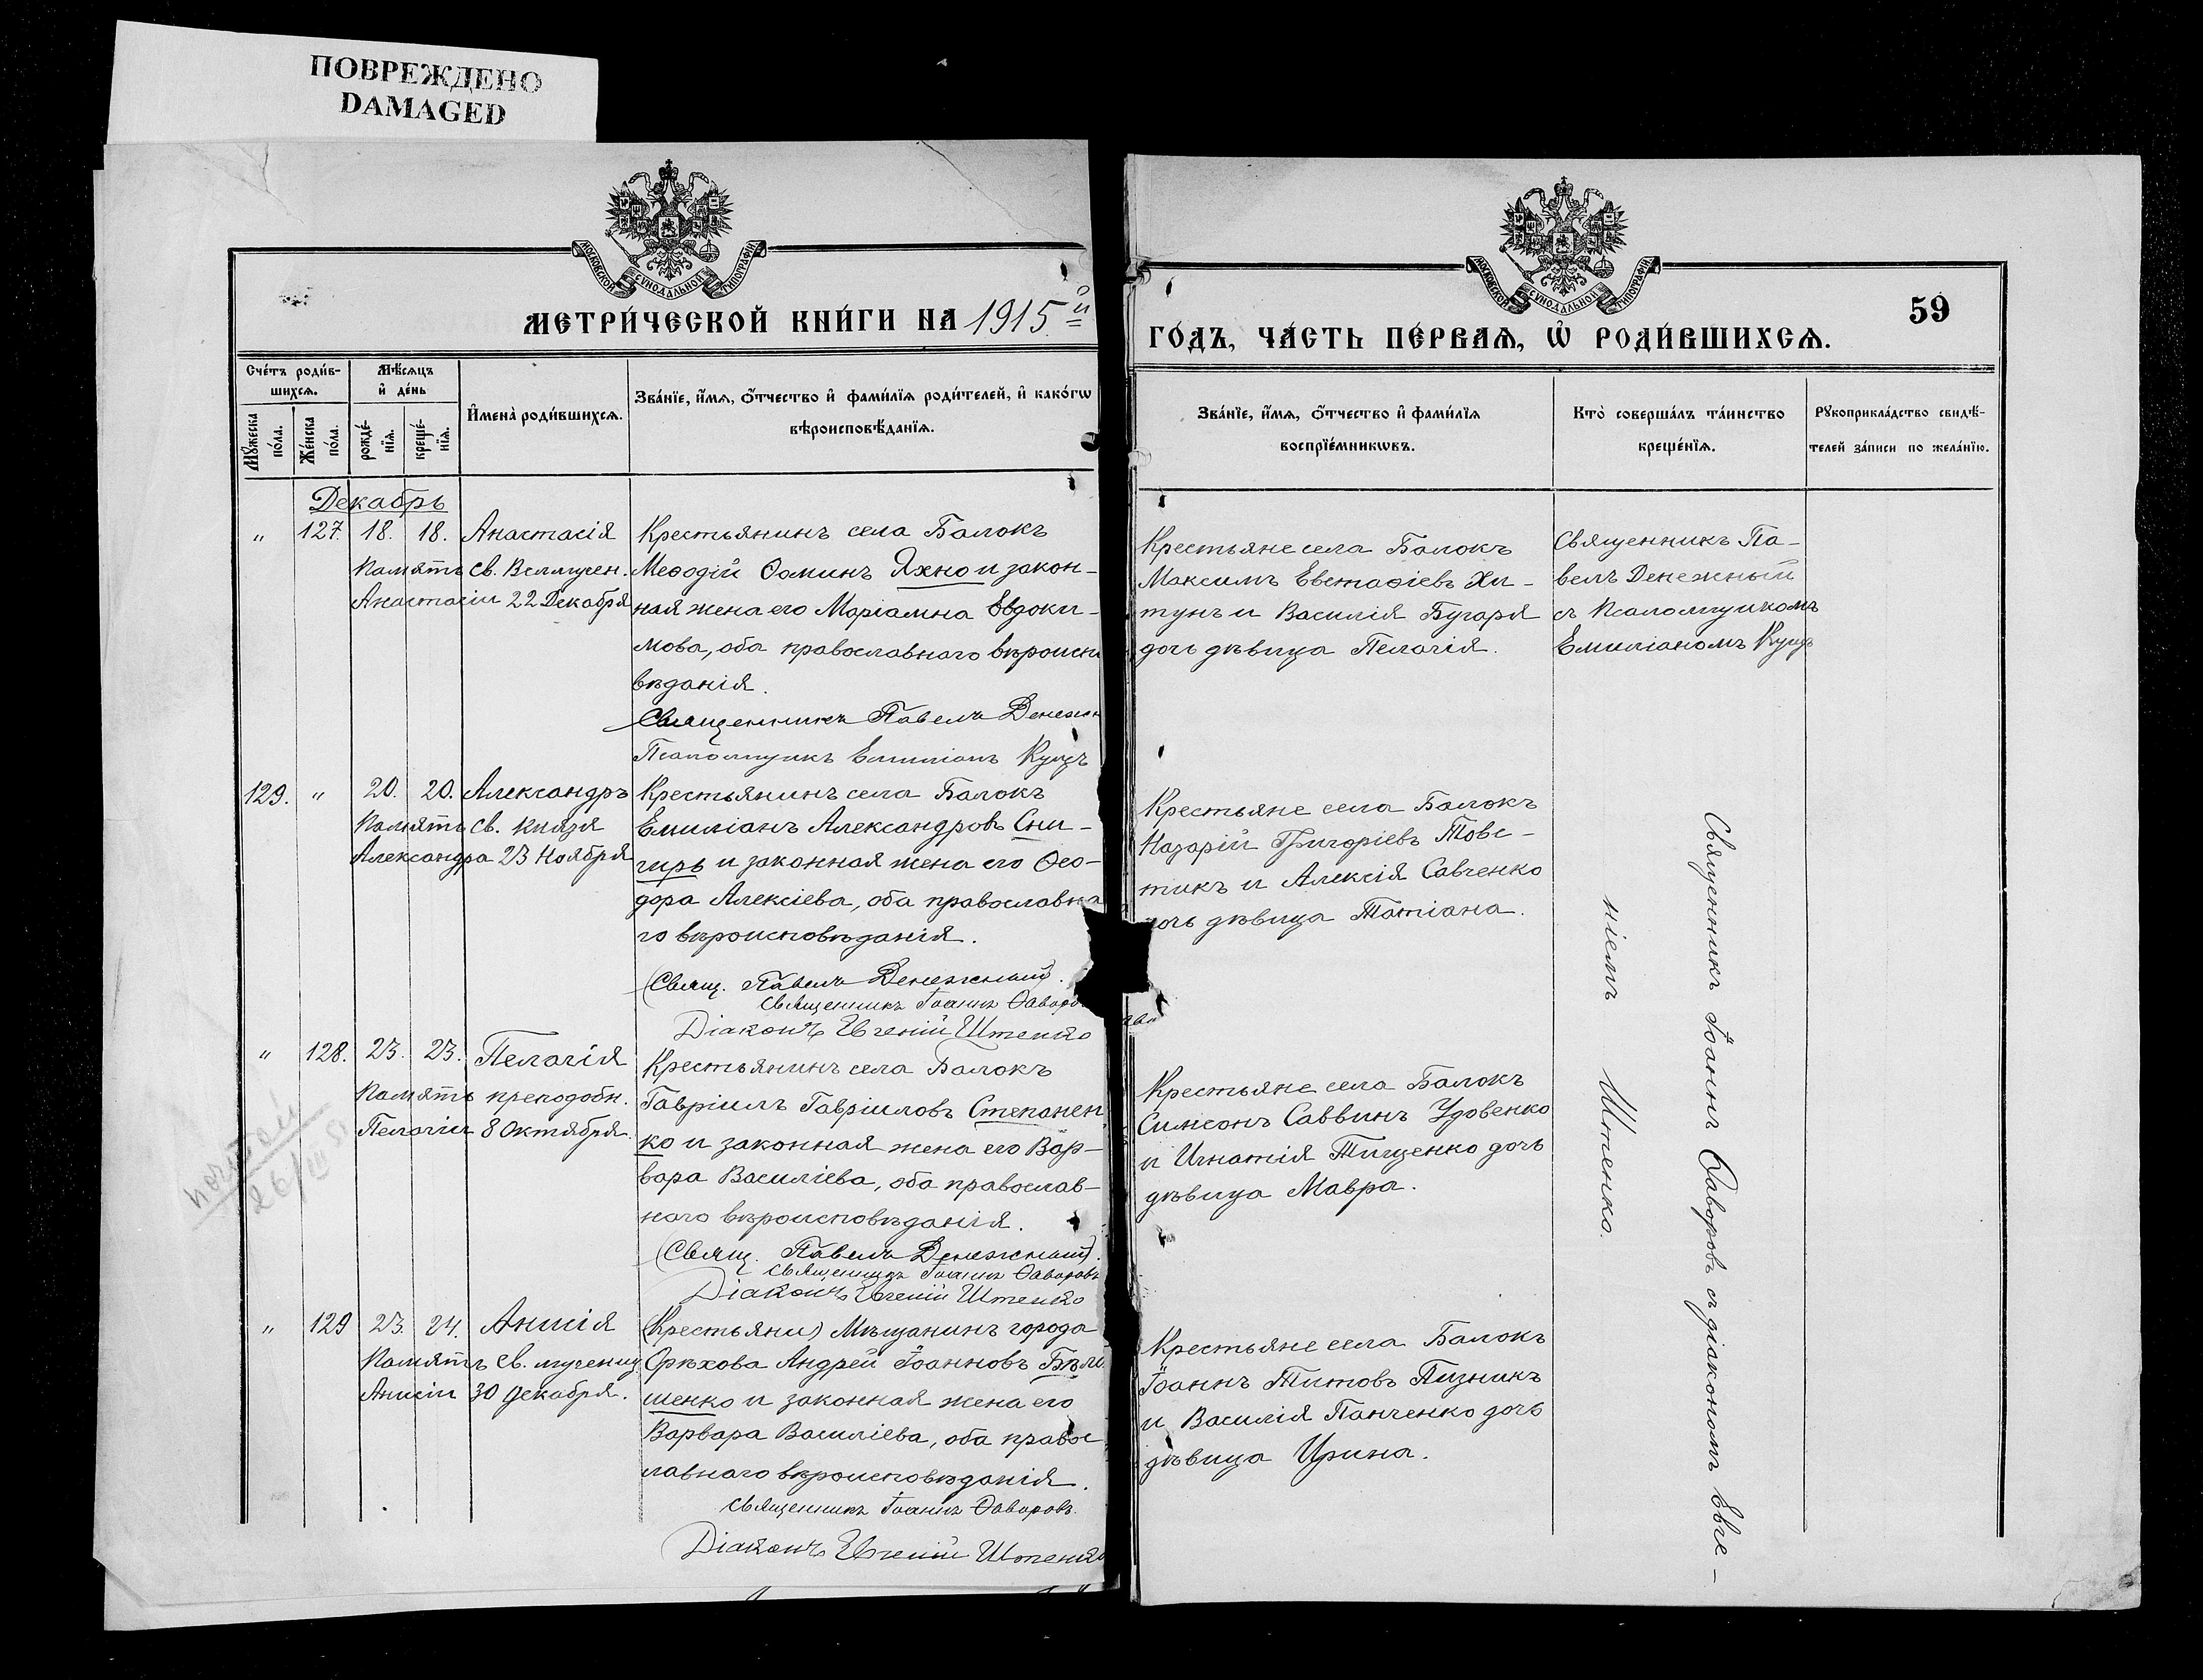 ПОВРЕЖДЕНО
DAMAGED
МОСКОВСКОЙ СУНОДАЛЬНОЙ ТИПОГРАФІИ
МОСКОВСКОЙ СУНОДАЛЬНОЙ ТИПОГРАФІИ
МЕТРИ́ЧЕСКОЙ КНИ́ГИ НА 1915й
59
ГО́ДЪ, ЧА́СТЬ ПЕ́РВАѦ, Ѡ҆ РОДИ́ВШИХСѦ.
Сче́тъ роди́в-
шихсѧ.
Мꙋ́жеска по́ла.
Же́нска по́ла.
Мѣ́сѧцъ
и҆ де́нь
рожде́-нїѧ.
креще́-нїѧ.
И҆мена̀ роди́вшихсѧ.
Зва́нїе, и҆́мѧ, ѻ҆́тчество и҆ фами́лїѧ роди́телей, и҆ како́гѡ
вѣроисповѣ́данїѧ.
Зва́нїе, и҆́мѧ, ѻ҆́тчество и҆ фами́лїѧ
воспрїе́мникѡвъ.
Кто̀ соверша́лъ та́инство
креще́нїѧ.
Рꙋкоприкла́дство свидѣ́-
телей за́писи по жела́нїю.
Декабрь
" 127. 18. 18. Анастасія
Память св. Великучен.
Анастасіи 22 Декабря
Крестьянинъ села Балокъ
Меѳодій Ѳоминъ Яхно и закон-
ная жена его Маріамна Евдоки-
мова, оба православнаго вѣроиспо
вѣданія.
Священникъ Павелъ Денежн
Псаломщикъ Емиліанъ Куцъ
Крестьяне села Балокъ
Максимъ Евстафіевъ Хи-
тунъ и Василія Бугаря
дочь дѣвица Пелагія.
Священникъ Па-
велъ Денежный
съ Псаломщикомъ
Емиліаномъ
129. " 20. 20. Александръ
Память св. Князя
Александра 23 Ноября
Крестьянинъ села Балокъ
Емиліанъ Александровъ Сни-
гирь и законная жена его Ѳео-
дора Алексіева, оба православна
го вѣроисповѣданія.
Свящ. Павелъ Денежный.
Священникъ Іоаннъ Ѳаворо
Діаконъ Евгеній Штенко
Крестьяне села Балокъ
Назарій Григоріевъ Товс-
тикъ и Алексія Савченко
дочь дѣвица Татіана.
" 128. 23. 23. Пелагія
Память преподобн.
Пелагіи 8 Октября.
Крестьянинъ села Балокъ
Гавріилъ Гавріиловъ Степанен
ко и законная жена его Вар-
вара Василіева, оба православ-
наго вѣроисповѣданія.
(Свящ. Павелъ Денежный).
Священникъ Іоаннъ Ѳаворовъ
Діаконъ Евгеній Штенко
Крестьяне села Балокъ
Симеонъ Саввинъ Удовенко
и Игнатія Тищенко дочь
дѣвица Мавра.
" 129 23. 24. Анисія
Память св. мучениц
Анисіи 30 Декабря.
(Крестьяни) Мѣщанинъ города
Орѣхова Андрей Іоанновъ Бѣли
шенко и законная жена его
Варвара Василіева, оба правос
лавнаго вѣроисповѣданія.
Священникъ Іоаннъ Ѳаворовъ.
Діаконъ Евгеній Штенко
Крестьяне села Балокъ
Іоаннъ Титовъ Пизникъ
и Василія Панченко дочь
дѣвица Ирина.
Священникъ Іоаннъ Ѳаворовъ съ діакономъ Евге-
ніемъ Штенко.